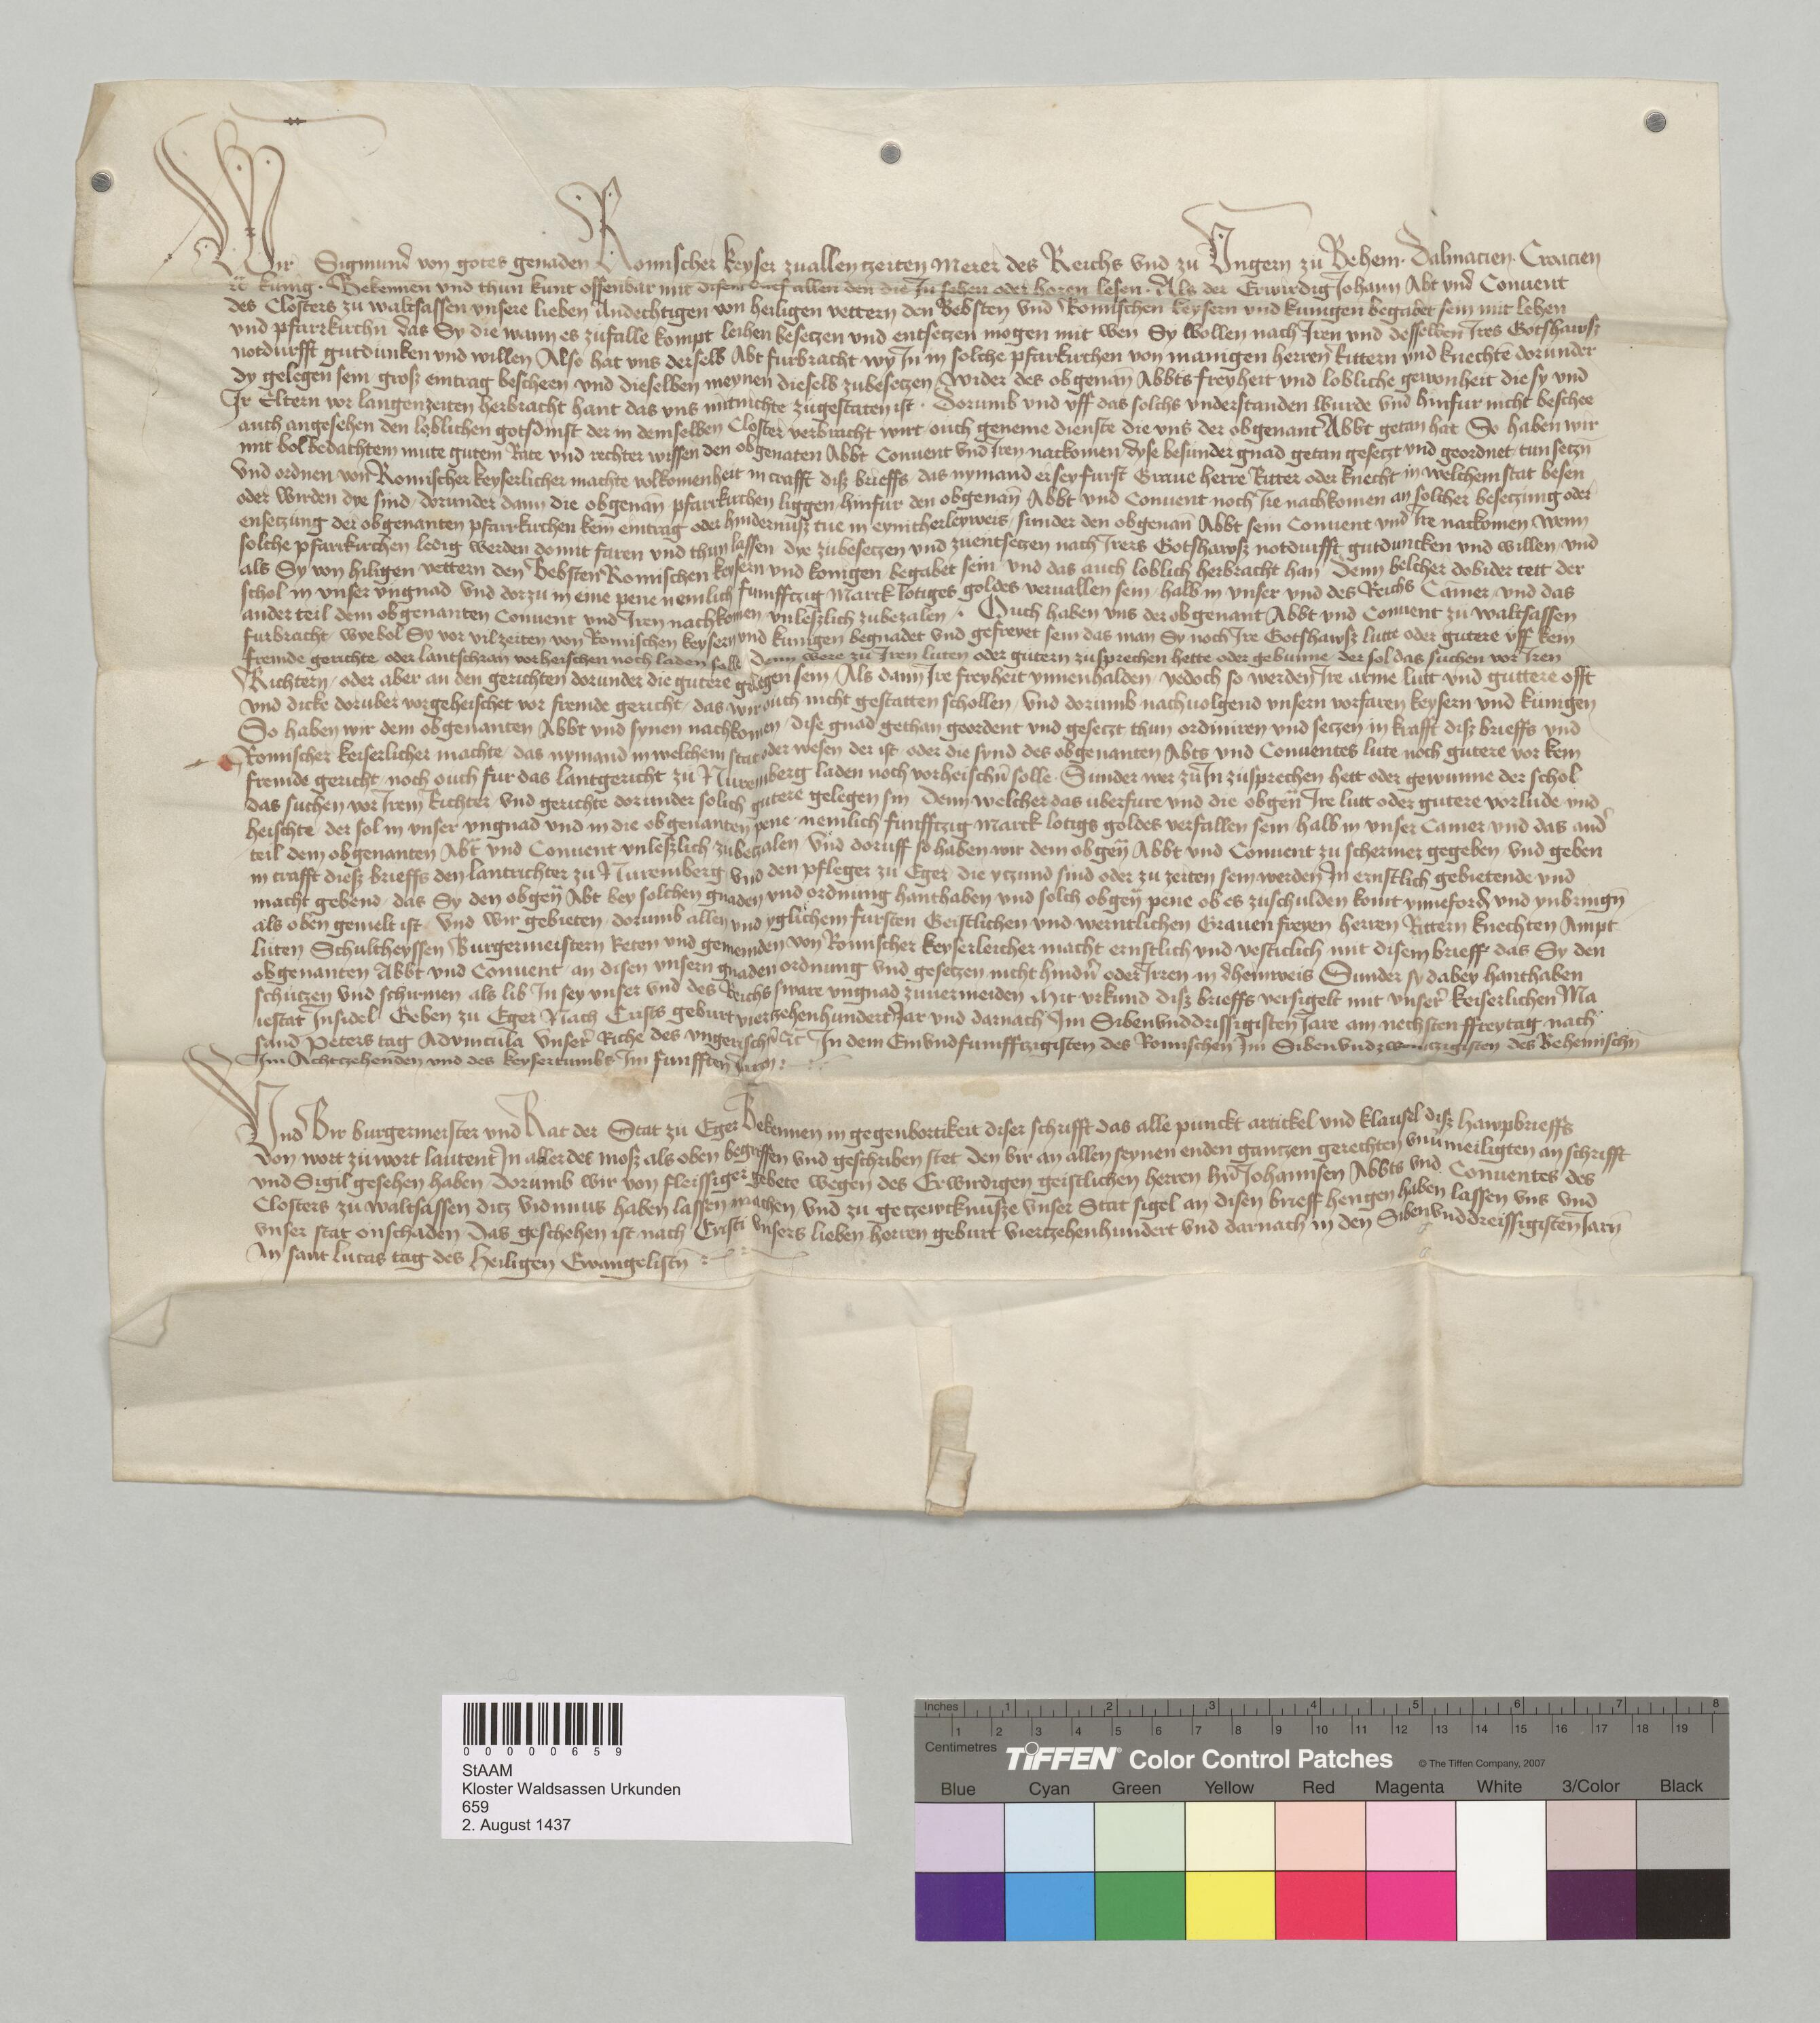 Wir Sigmund von gotes genaden Romischer keyser zuallenczeiten Merer des Reichs vnd zu Vngern zu Behem · Dalmacien · Croacien
ꝛc̄ kunig · Bekennen vnd thun kunt offenbar mit disem brief allen den die In sehen oder horen lesen · Als der Erwirdig Johann Abt vnd Conuent
des Closters zu waltsassen vnsere lieben Andechtigen von heiligen vettern den Bebsten vnd Romischen keysern vnd kunigen begabet sein mit lehen
vnd pfarrkirchn das Sy die wann es zufalle kompt leihen besetzen vnd entsetzen mogen mit wen Sy wollen nach Iren vnd desselben Ires Gotshawsz
notdurfft gutdunken vnd willen Also hat vns derselb Abt furbracht wy In in solche pfarkirchen von manigen herren Rittern vnd knechte dorunder
dy gelegen sein grosz eintrag bescheen vnd dieselben meynen dieselb zubesetzen / wider des obgenan̄ Abbts freyheit vnd lobliche gewonheit die sy vnd
Ir Eltern vor langenzeiten herbracht hant das vns mitnichte zugestaten ist · Dorumb vnd vff das solchs vnderstanden wurde vnd hinfur nicht beschee
auch angesehen den loblichen gotsdinst der in demselben Closter verbracht wirt ouch geneme dienste die vns der obgenant Abbt getan hat So haben wir
mit bolbedachtem mute gutem Rate vnd rechter wissen den obgenaten Abbt Conuent vnd Iren nackomen / dyse besunder gnad getan gesetzt vnd geordnet tun setzn̄
vnd ordnen von Romischer keyserlicher machte volkomenheit in crafft disz brieffs / das nymand er sey furst Graue herre Ritter oder knecht in welchem stat wesen
oder wirden dye sind / dorunder dann die obgenan̄ pfarrkirchen liggen / hinfur den obgenan̄ Abbt vnd Conuent noch Ire nachkomen an solcher besetzung oder
ensetzung der obgenanten pfarrkirchen kein eintrag oder hindernusz tue in eynicherleyweis / sunder den obgenan̄ Abbt sein Conuent vnd Ire nackomen wenn
solche pfarrkirchen ledig werden domit faren vnd thun lassen dye zubesetzen vnd zuentsetzen nach Irers Gotshawsz notdurfft gutduncken vnd willen / vnd
als Sy von hiligen vettern den Bebsten Romischen keysern vnd konigen begabet sein vnd das auch loblich herbracht han Denn belcher dobider tett der
schol in vnser vngnad vnd dorzu in eine pene nemlich funfftzig Marck lotiges goldes veruallen sein / halb in vnser vnd des Reichs Camer / vnd das
ander teil dem obgenanten Conuent vnd Iren nachkomen vnleszlich zubezalen · Ouch haben vns der obgenant Abbt vnd Conuent zu waltsassen
furbracht wyebol Sy vor vilzeiten von Romischen keysern vnd kunigen begnadet vnd gefreyet sein das man Sy noch Ire Gotshawsz lutte oder gutere vff kein
fremde gerichte oder lantschran vorheischen noch laden solle Denn were zu Iren luten oder gutern zusprechen hette oder gebunne / der sol das suchen vor Iren
Richtern / oder aber an den gerichten dorunder die gutere gelegen sein / Als dann Ire freyheit ynnenhalden / yedoch so werden Ire arme lutt vnd guttere offt
vnd dicke doruber vorgeheischet vor fremde gericht / das wir ouch nicht gestatten schollen / Vnd dorumb nachuolgend vnsern vorfaren keysern vnd kunigen
So haben wir dem obgenanten Abbt vnd synen nachkomen / dise gnad gethan geordent vnd gesetzt thun ordiniren vnd setzen in krafft disz brieffs vnd
Romischer keiserlicher machte / das nymand in welchem stat oder wesen der ist / oder die synd des obgenanten Abts vnd Conuentes lute noch gutere vor kein
fremde gericht / noch ouch fur das lantgericht zu Nuremberg laden noch vorheischn̄ solle · Sunder wer zu In zusprechen hett oder gewunne der schol
das suchen vor Irem Richter vnd gerichte dorunder solich gutere gelegen sin Denn welcher das uberfure vnd die obgen̄ Ire lutt oder gutere vorlude / vnd
heischte der sol in vnser vngnad vnd in die obgenanten pene / nemlich funfftzig Marck lotigs goldes verfallen sein / halb in vnser Camer vnd das and̄
teil dem obgenanten Abt vnd Conuent vnleszlich zubezalen / Vnd doruff so haben wir dem obgen̄ Abbt vnd Conuent zu schermer gegeben vnd geben
in crafft diesz brieffs den lantrichter zu Nuremberg vnd den pfleger zu Eger die yczund sind oder zu zeiten sein werden In ernstlich gebietende vnd
macht gebend / das Sy den obgen̄ Abt bey solchen gnaden vnd ordnung hanthaben vnd solch obgen̄ pene ob es zuschulden komt ynneford̄ vnd ynbringn̄
als oben gemelt ist / Vnd wir gebieten / dorumb allen vnd yglichem fursten Geistlichen vnd werntlichen Grauen freyen herren Rittern knechten Ampt
luten Schultheyssen Burgermeistern Reten vnd gemeinden von Romischer keyserlercher macht ernstlich vnd vesticlich mit disem brieff das Sy den
obgenanten Abbt vnd Conuent an disen vnsern gnaden ordnung vnd gesetzen nicht hindn̄ oder Irren in dheinweis Sunder sy dabey hanthaben
schutzen vnd schirmen als lib In sey vnser vnd des Reichs sware vngnad zuuermeiden Mit vrkund disz brieffs versigelt mit vnser keiserlichen Ma
iestat Insidel Geben zu Eger Nach Crists geburt vierzehenhundert Jar vnd darnach Im Sibenvnddrissigisten Jare am nechsten ffreytag nach
sand Peters tag Aduincula Vnser Riche des vngerischn̄ ꝛc̄ In dem Einvndfunfftzigisten des Romischen Im Sibenvndzwentzigisten des Behemischn̄
Im Achtzehenden vnd des keysertumbs Im funfften Jaren :
Vnd Bir burgermeister vnd Rat der Stat zu Eger Bekennen in gegenbortikeit diser schrifft das alle punckt artickel vnd klausel disz hawpbrieffs
von wort zu wort lautent In aller des mosz als oben begriffen vnd geschriben stet den bir an allen seynen enden gantzen gerechten vnuermeiligten an schrifft
vnd Sigil gesehen haben Dorumb wir von fleissiger gebete wegen des Erwirdigen geistlichen herren hrn̄ Johannsen Abbts vnd Conuentes des
Closters zu waltsassen ditz vidimus haben lassen machen / vnd zu getzewcknusze vnser Stat sigel an disen brieff hengen haben lassen vns vnd
vnser stat onschaden Das geschehen ist nach Cristi vnsers lieben herren geburt viertzehenhundert vnd darnach in den Sibenvnddreissigisten Jarn̄
An sant lucas tag des heiligen Ewangelistn̄ :
0 0 0 0 0 6 5 9
StAAM
Kloster Waldsassen Urkunden
659
2. August 1437
Inches 1 2 3 4 5 6 7 8
1 2 3 4 5 6 7 8 9 10 11 12 13 14 15 16 17 18 19
Centimetres
TIFFEN® Color Control Patches © The Tiffen Company, 2007
Blue Cyan Green Yellow Red Magenta White 3/Color Black